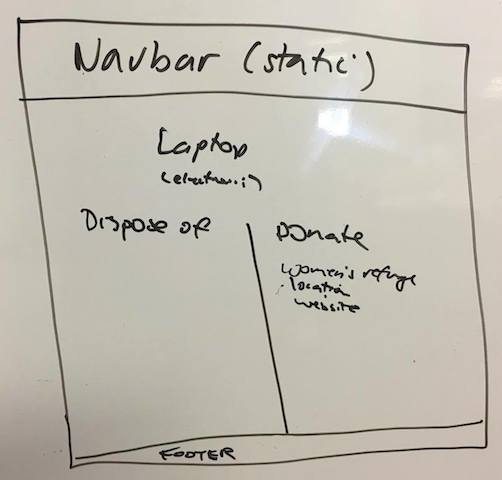 Navbar (static)
Laptop
Dispose of
Donate
women's refuge
location
website
FOOTER